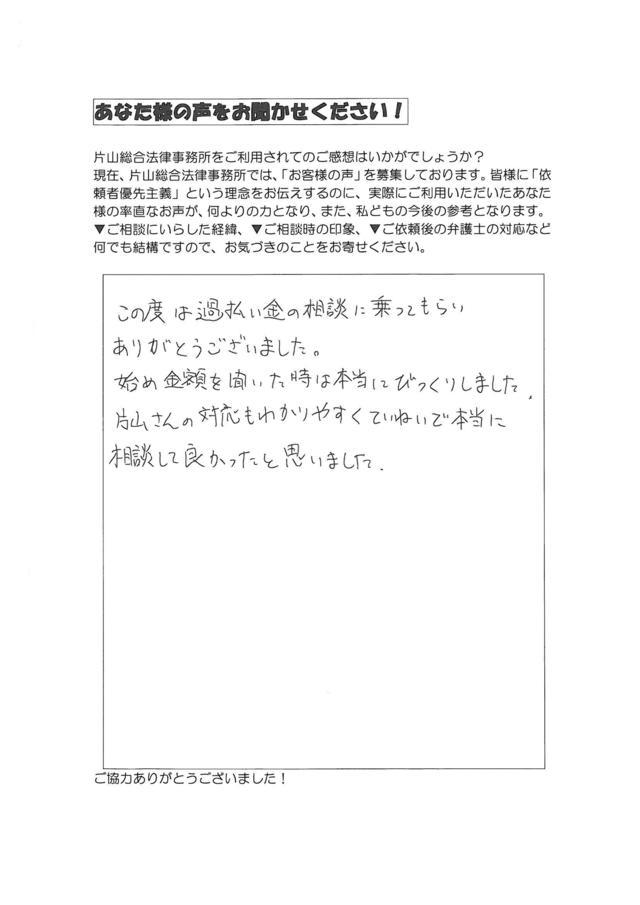 あなた様の声をお聞かせください！
片山総合法律事務所をご利用されてのご感想はいかがでしょうか？
現在、片山総合法律事務所では、「お客様の声」を募集しております。皆様に「依
頼者優先主義」という理念をお伝えするのに、実際にご利用いただいたあなた
様の率直なお声が、何よりの力となり、また、私どもの今後の参考となります。
▼ご相談にいらした経緯、▼ご相談時の印象、▼ご依頼後の弁護士の対応など
何でも結構ですので、お気づきのことをお寄せください。
この度は過払い金の相談に乗ってもらい
ありがとうございました。
始め金額を聞いた時は本当にびっくりしました.
片山さんの対応もわかりやすくていねいで本当に
相談して良かったと思いました.
ご協力ありがとうございました！